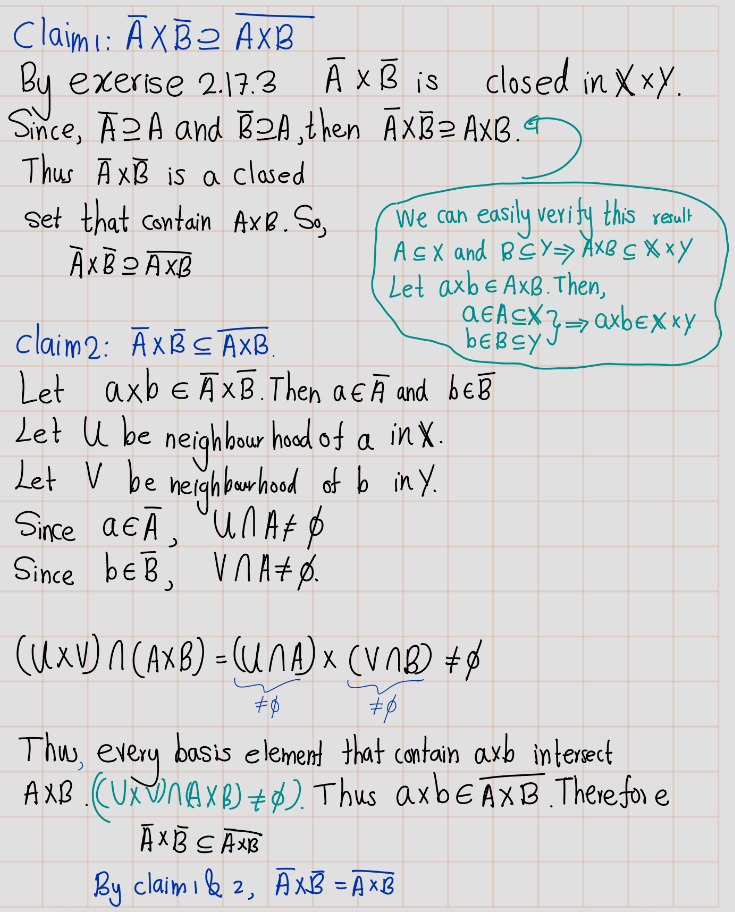 Claim 1: A̅ × B̅ ⊇ \overline{A×B}
By exerise 2.17.3 A̅ × B̅ is closed in X×Y.
Since, A̅ ⊇ A and B̅ ⊇ A, then A̅×B̅ ⊇ A×B.
Thus A̅×B̅ is a closed
set that contain A×B. So,
A̅×B̅ ⊇ \overline{A×B}
We can easily verify this result
A ⊆ X and B ⊆ Y ⇒ A×B ⊆ X×Y
Let a×b ∈ A×B. Then,
a∈A⊆X
b∈B⊆Y } ⇒ a×b ∈ X×Y
Claim 2: A̅×B̅ ⊆ \overline{A×B}.
Let a×b ∈ A̅×B̅. Then a∈A̅ and b∈B̅
Let U be neighbourhood of a in X.
Let V be neighbourhood of b in Y.
Since a∈A̅, U∩A ≠ ϕ
Since b∈B̅, V∩A ≠ ϕ.
(U×V) ∩ (A×B) = (U∩A) × (V∩B) ≠ ϕ
≠ϕ ≠ϕ
Thus, every basis element that contain a×b intersect
A×B. ((U×V)∩(A×B) ≠ ϕ). Thus a×b ∈ \overline{A×B}. Therefore
A̅×B̅ ⊆ \overline{A×B}
By claim 1 & 2, A̅×B̅ = \overline{A×B}